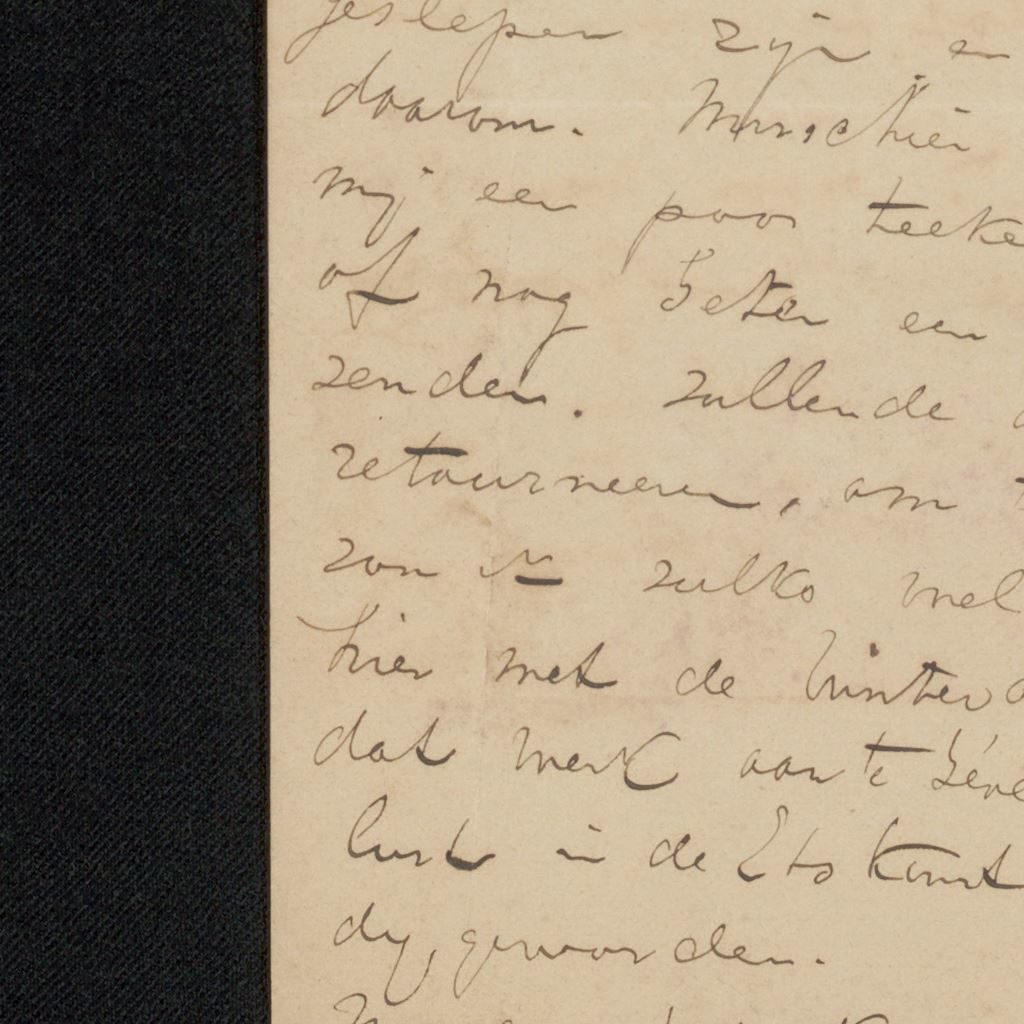 geslepen zijn en
daarom. Misschien
mij een paar teeke
of nog beter een
zenden. zullende d
retourneeren, om
zoo zulks wel
hier met de winter
dat werk aan te beve
lust in de Etskunst
dig geworden.